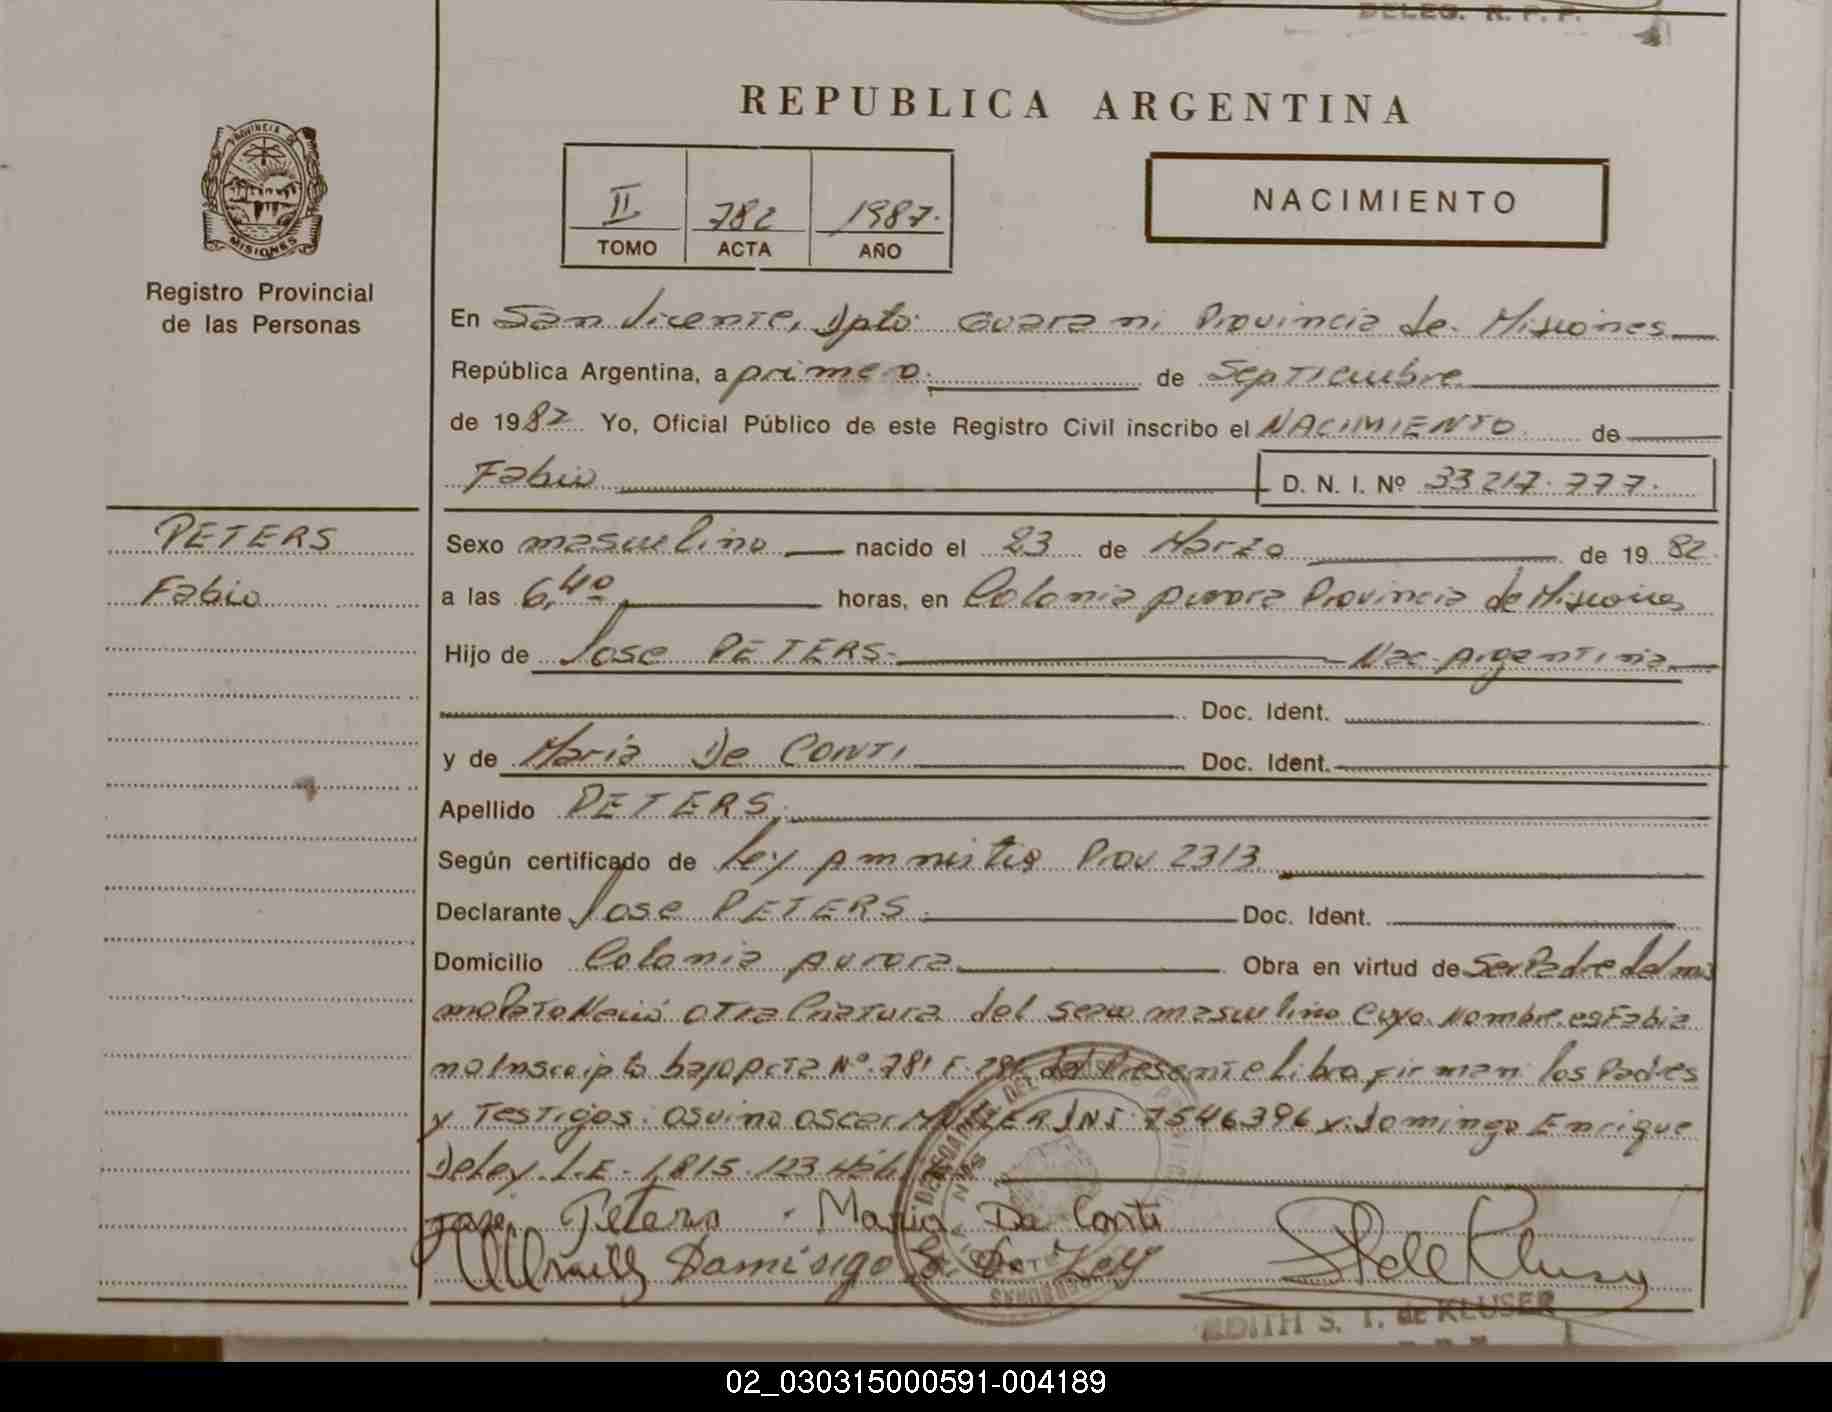 DELEG. R. P. P.
REPUBLICA ARGENTINA
PROVINCIA DE
MISIONES
II 782 1987.
TOMO ACTA AÑO
NACIMIENTO
Registro Provincial
de las Personas
En San Vicente, Dpto. Guarani Provincia de Misiones
República Argentina, a primero. de Septiembre
de 1987 Yo, Oficial Público de este Registro Civil inscribo el NACIMIENTO. de
Fabio D. N. I. Nº 33 217.777.
PETERS
Fabio
Sexo masculino nacido el 23 de Marzo de 19 82
a las 6,40 horas, en Colonia Aurora Provincia de Misiones
Hijo de Jose PETERS. Nac. Argentina
Doc. Ident.
y de Maria De CONTI Doc. Ident.
Apellido PETERS.
Según certificado de Ley Amnistia Prov 2313.
Declarante Jose PETERS. Doc. Ident.
Domicilio Colonia Aurora Obra en virtud de Ser Padre del mis
mo Parto Nació otra Criatura del sexo masculino Cuyo Nombre es Fabia
no Inscripto bajo Acta Nº 781 F. 781 del Presente Libro firman los Padres
y Testigos: Osvino Oscar MULLER DNI 7546396 y Domingo Enrique
Deley L.E. 1.815.123
Jose Peters. Maria De Conti
Domingo E. De Ley
EDITH S. T. de KLUSER
02_030315000591-004189